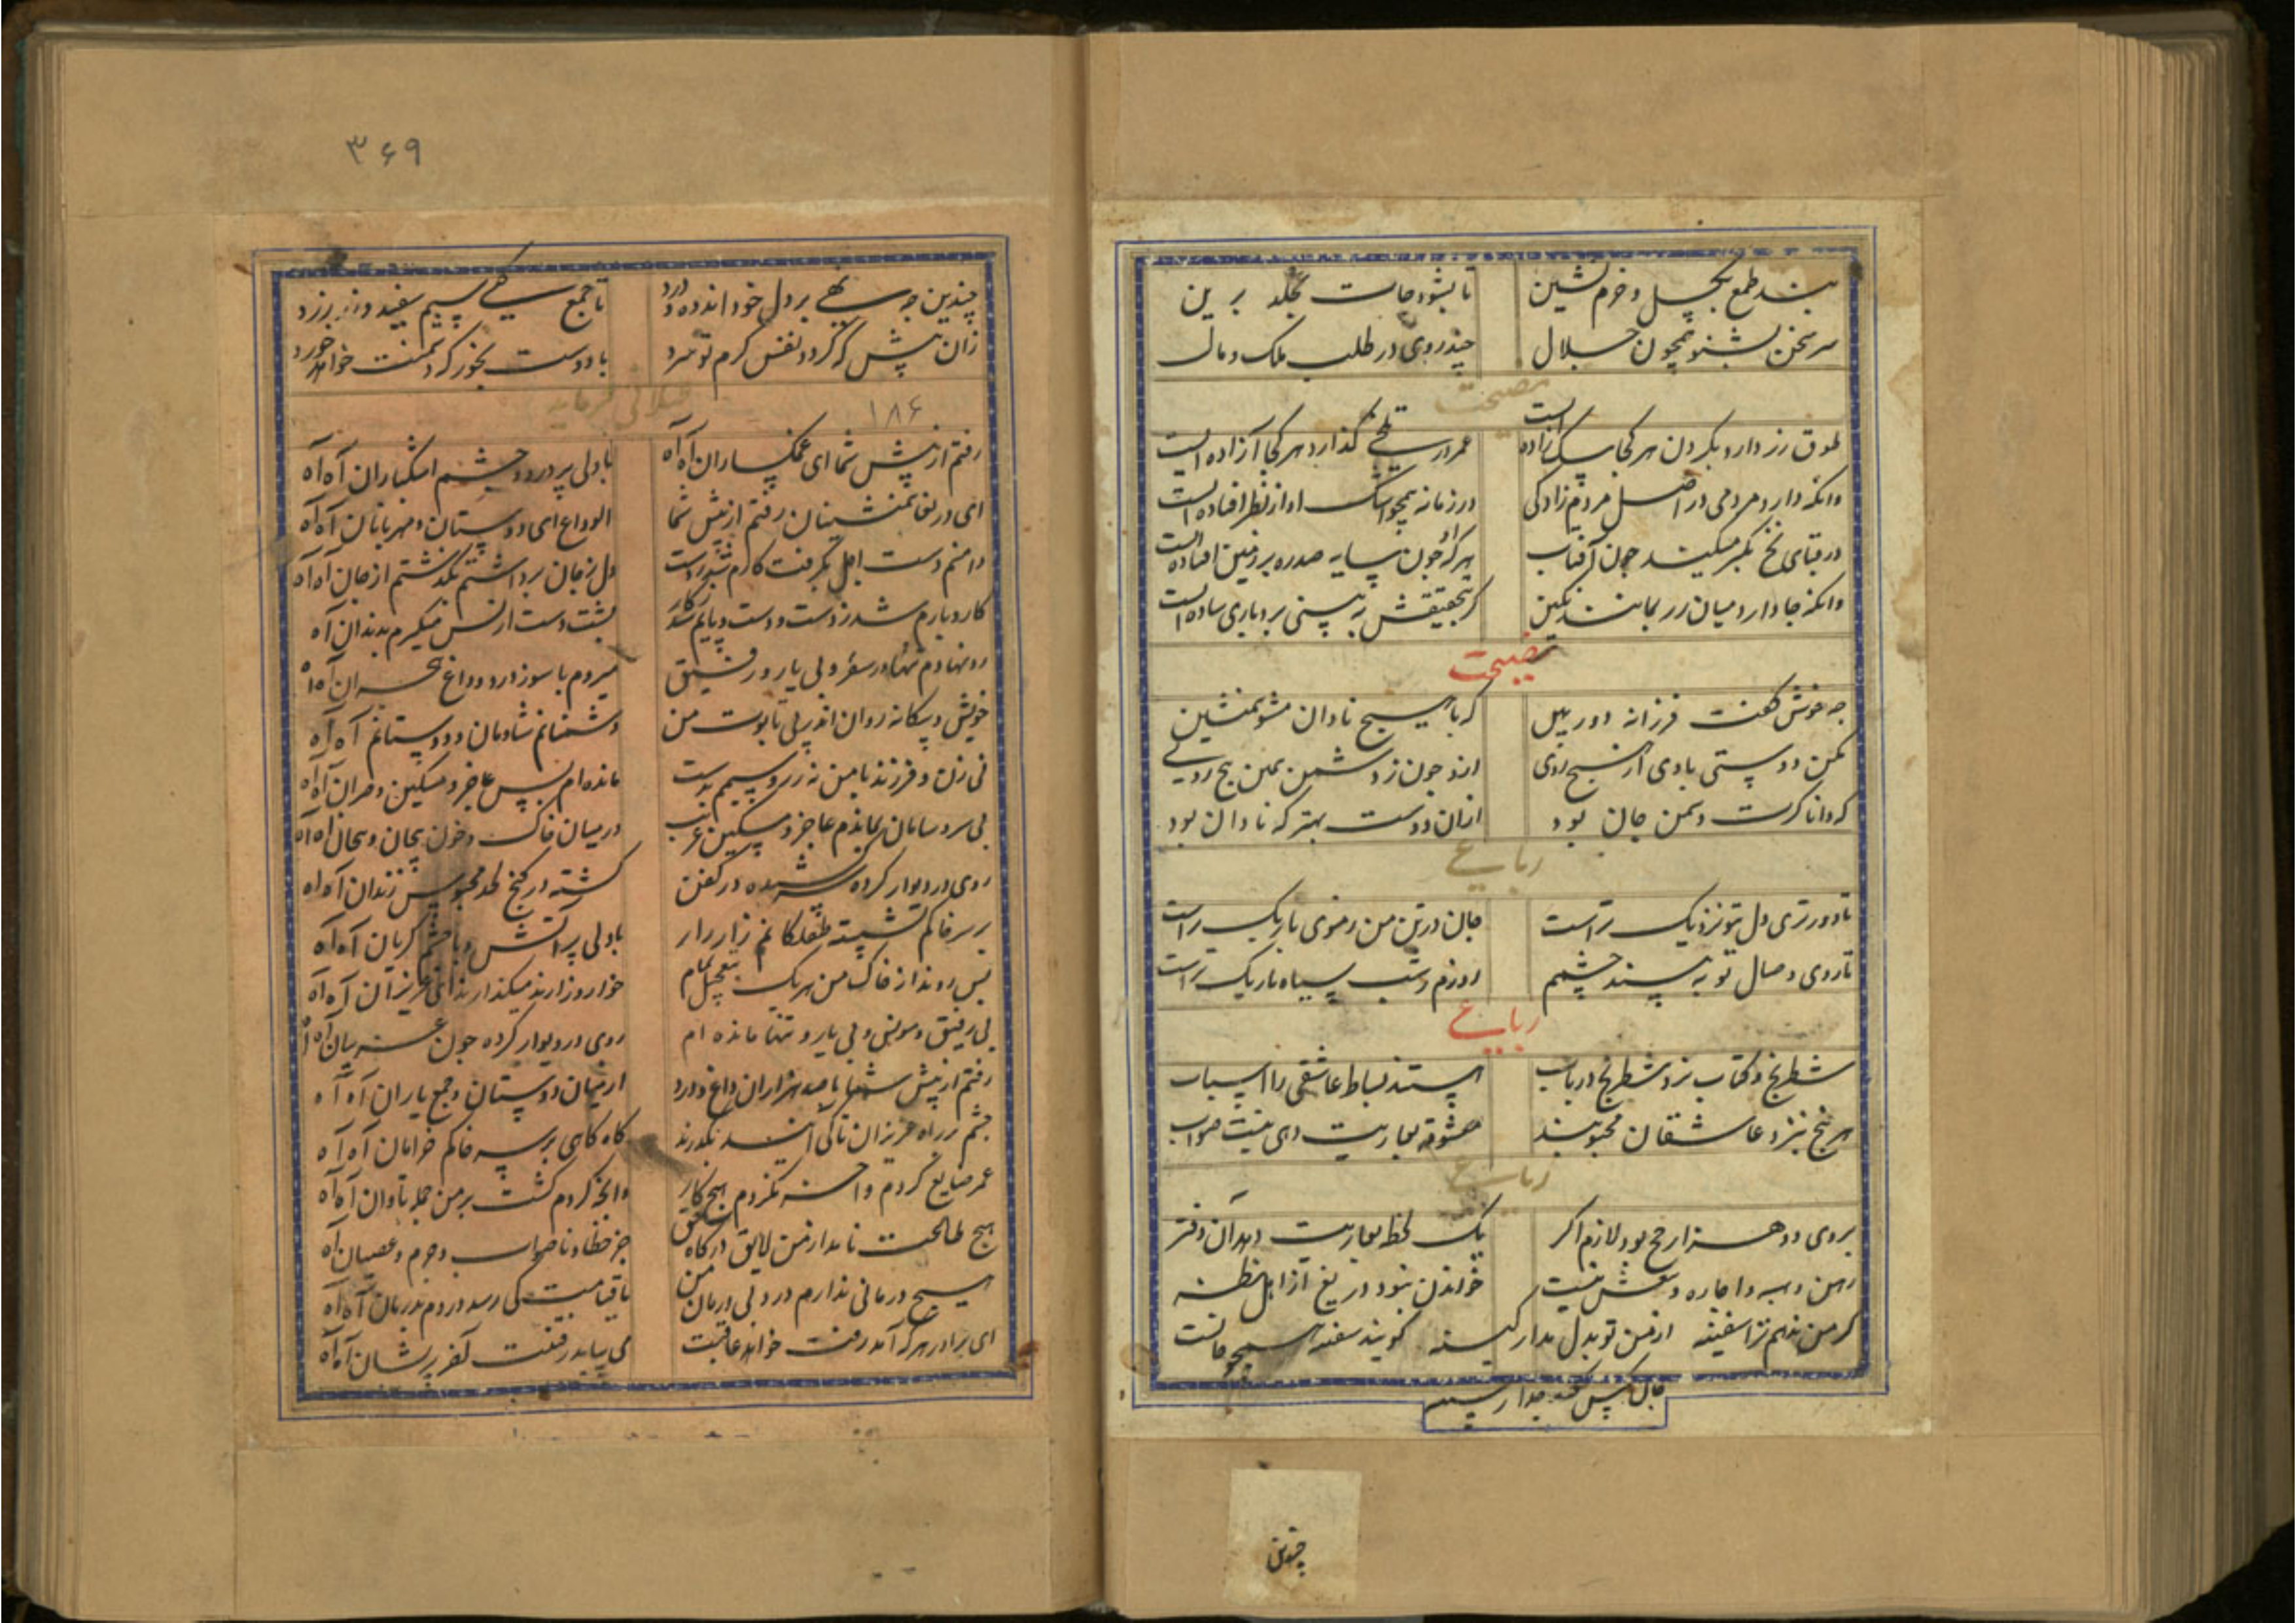 بند طمع بگسل و خرم نشین تا بشود جات بخلد برین
سر سخن بشنو همچون حلال چند روی در طلب ملک و مال
نصیحت
طوق زر دارد بگردن هر کجا سگ زاده است عمر در تلخی گذارد هر کجا آزاده است
وانکه دارد مردمی در اصل مردم زادگی در زمانه همچو اشک او از نظر افتاده است
در قبای نخ تکبر میکند چون آفتاب هر که او چون سایه صدره بر زمین افتاده است
وانکه جا دارد میان زر بمانند نگین گر بتحقیقش به بینی بردباری ساده است
نصیحت
چه خوش گفت فرزانه دوربین که با هیچ نادان مشو همنشین
مکن دوستی با وی از هیچ روی
که دانا گرت دشمن جان بود ازان دوست بهتر که نادان بود
رباعی
تا دورتری دل بتو نزدیک تراست جان در تن من ز موی باریک تراست
تا روی وصال تو به بیند چشمم روزم ز شب سیاه تاریک تراست
رباعی
شطرنج و کتاب نرد شطرنج و رباب هستند بساط عاشقی را اسباب
هر پنج بنزد عاشقان محبوبند معشوقه بعاریت دهی نیست صواب
رباعی
بروی دو هزار حج بود لازم اگر یک لحظه بعاریت دهد آن دفتر
رهن و هبه و اجاره و بیعش نیست خواندن نبود دریغ از اهل نظر
گر من ندهم ترا سفینه از من تو بدل مدار کینه گویند سفینه همچو جانست
جان کس نکند جدا ز سینه
چندین
۳۶۹
چندین چه نهی بر دل خود انده و درد تا جمع کنی سیم سفید و زر زرد
زان پیش که گردد نفس گرم تو سرد با دوست بخور که دشمنت خواهد خورد
۱۸۶
رفتم از پیش شما ای غمگساران آه آه با دلی پر درد و چشم اشکباران آه آه
ای دریغا همنشینان رفتم از پیش شما الوداع ای دوستان و مهربانان آه آه
دامنم دست اجل بگرفت کارم شد ز دست دل ز جان برداشتم بگذشتم از جان آه آه
کار و بارم شد ز دست و دست و پایم شد ز کار پشت دست از بس میگیرم بدندان آه
رو نهادم تنها در سفر و بی یار و رفیق میروم با سوز درد و داغ هجران آه آه
خویش و بیگانه روان اندر پی تابوت من دشمنانم شادمان و دوستانم آه آه
نی زن و فرزند با من نه زر و سیم بدست مانده ام بس عاجز و مسکین و حیران آه آه
بی سر و سامان بماندم عاجز و مسکین غریب در میان خاک و خون پیچان و بیجان آه آه
روی در دیوار کرده سر کشیده در کفن گشته در کنج لحد محبوس زندان آه آه
بر سر خاکم نشسته طفلکانم زار زار با دلی پر آتش و با چشم گریان آه آه
پس روند از خاک من هر یک بتعجیل تمام خوار و زارند میگذارند این عزیزان آه آه
بی رفیق و مونس و بی یار و تنها مانده ام روی در دیوار کرده چون غریبان آه آه
رفتم از پیش شما با صد هزاران داغ و درد از میان دوستان و جمع یاران آه آه
چشم در راه عزیزان تا کی آیند بگذرند گاه گاهی بر سر خاکم خرامان آه آه
عمر ضایع کردم و احسنه نکردم هیچ کار وانچه کردم گشت بر من جمله تاوان آه آه
هیچ طاعت نامد از من لایق درگاه حق جز خطا و ناصواب و جرم و عصیان آه
هیچ درمانی ندارم درد بی درمان من تا قیامت کی رسد دردم بدرمان آه آه
ای برادر هر که آمد رفت خواهد عاقبت می بباید رفتنت آخر پریشان آه آه